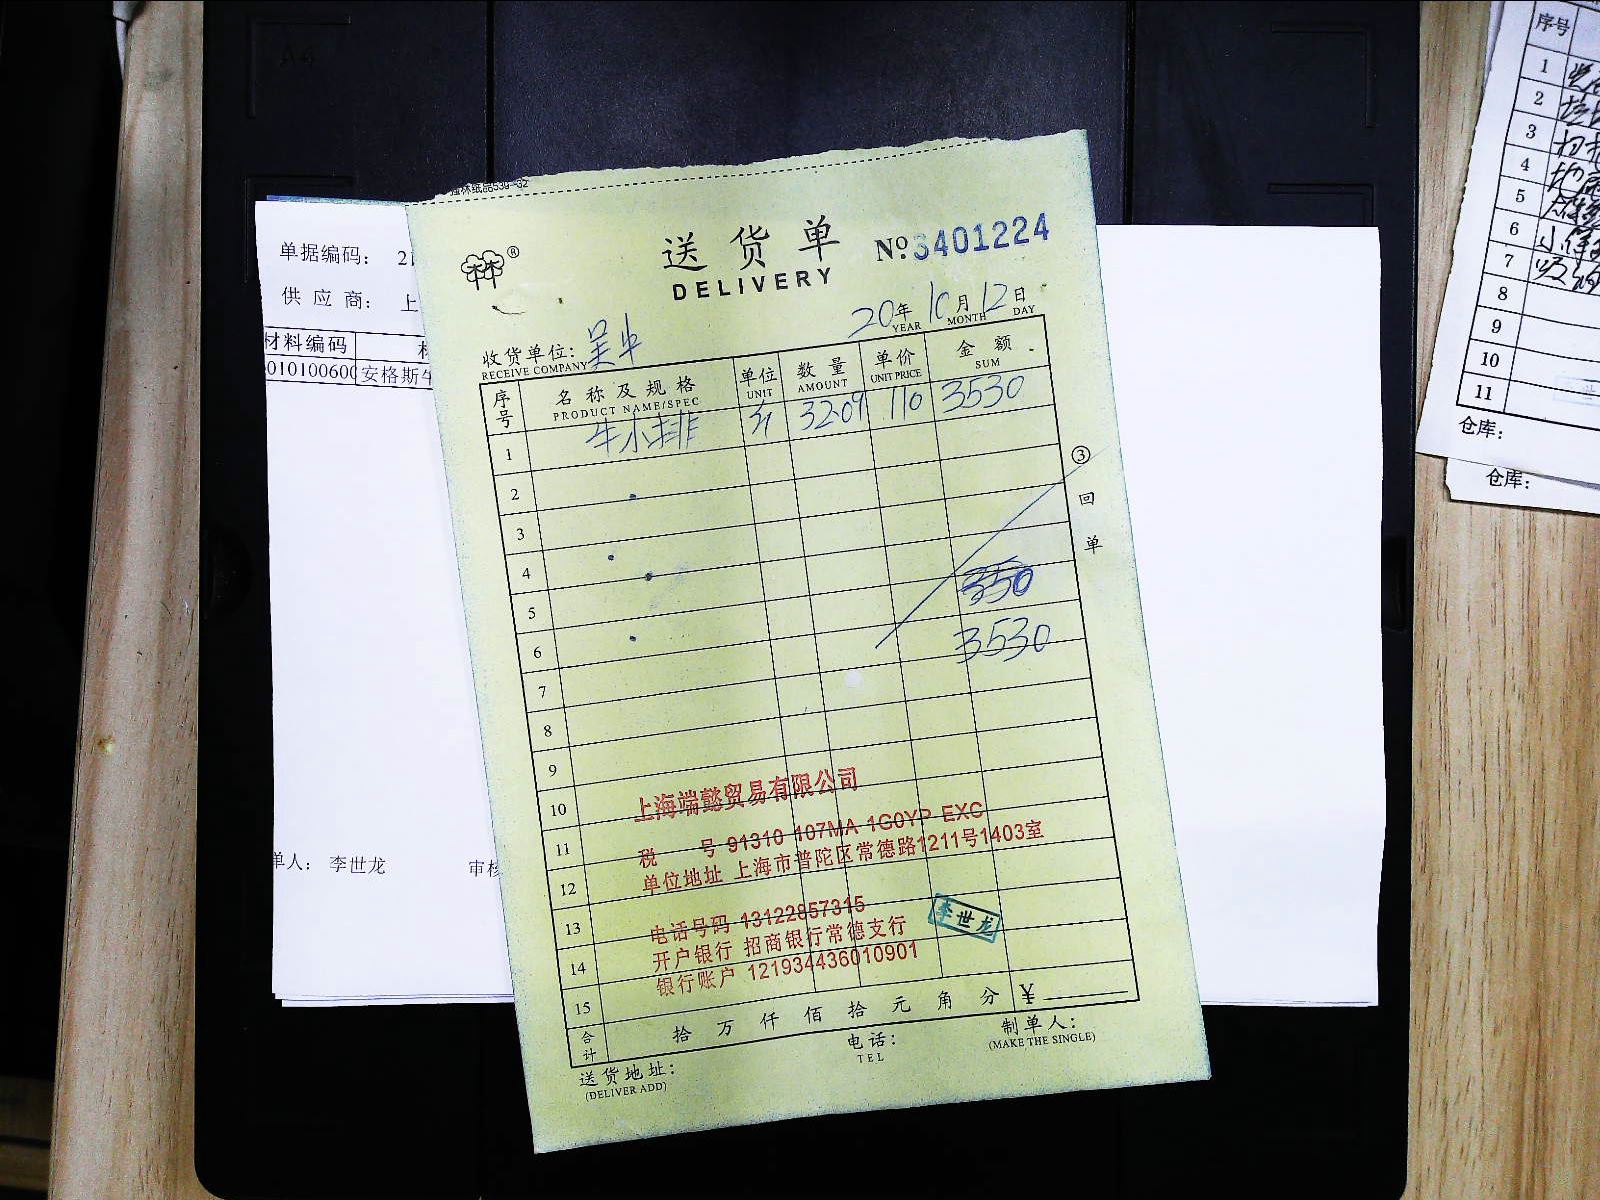 A4
强林纸品539-32
林 ®
送 货 单
DELIVERY
№ 3401224
20年 10月 12日
YEAR MONTH DAY
收货单位: 吴牛
RECEIVE COMPANY
序号 名称及规格 单位 数量 单价 金额
PRODUCT NAME/SPEC UNIT AMOUNT UNIT PRICE SUM
1 牛小排 斤 32.09 110 3530
2
3
4
5
6 3530
7
8
9
10
11
12
13
14
15
③ 回单
上海端懿贸易有限公司
税 号 91310 107MA 1G0YP EXC
单位地址 上海市普陀区常德路1211号1403室
电话号码 13122857315
开户银行 招商银行常德支行
银行账户 121934436010901
李世龙
合计 拾 万 仟 佰 拾 元 角 分 ¥
送货地址:
(DELIVER ADD)
电话:
TEL
制单人:
(MAKE THE SINGLE)
单据编码: 2
供 应 商: 上
材料编码
010100600 安格斯牛
单人: 李世龙 审核
序号
1
2
3
4
5
6
7
8
9
10
11
仓库:
仓库: